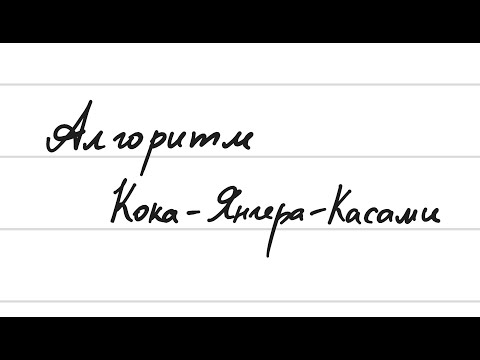 Алгоритм
Кока-Янгера-Касами